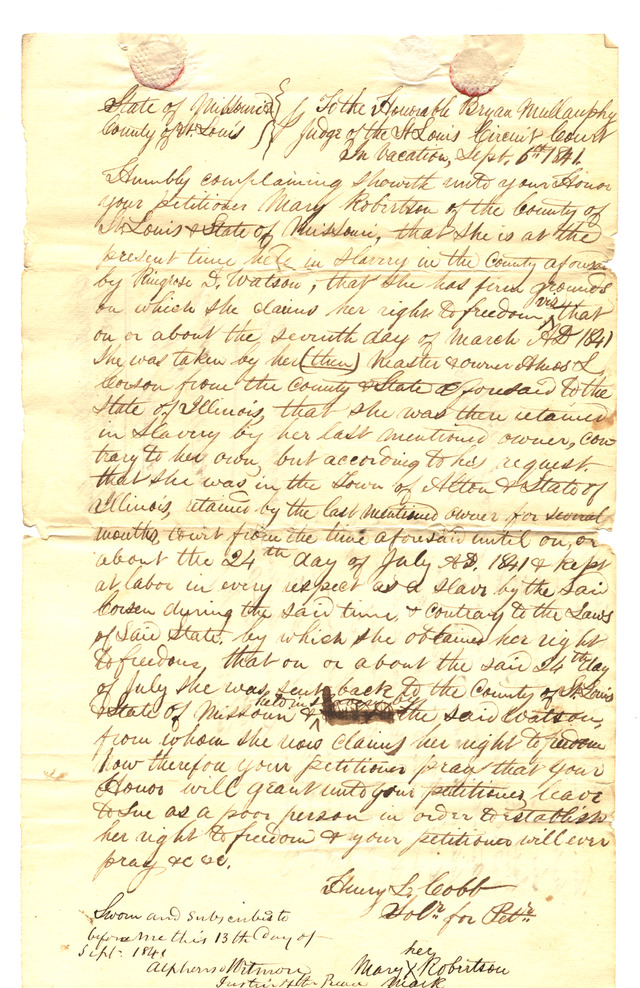 State of Missouri } To the Honorable Bryan Mullanphy
County of St Louis } Judge of the St Louis Circuit Court
In Vacation, Sept. 6th 1841.
Humbly complaining showeth unto your Honor
your petitioner Mary Robertson of the County of
St. Louis & State of Missouri, that she is at the
present time held in slavery in the County aforesaid
by Ringrose D. Watson, that she has firm grounds
on which she claims her right to freedom, viz that
on or about the seventh day of March AD 1841
She was taken by her (then) Master & owner Amos L
Corson from the County & State aforesaid to the
State of Illinois, that she was there retained
in Slavery by her last mentioned owner, con
trary to her own, but according to his request.
that she was in the Town of Alton & State of
Illinois, retained by the last mentioned owner for several
months, from the time aforesaid until on, or
about the 24th day of July AD. 1841 & kept
at labor in every respect as a slave by the said
Corson during the said time, & contrary to the Laws
of Said State, by which she obtained her right
to freedom, that on or about the said 24th day
of July she was sent back to the County of St. Louis
& State of Missouri & the said Watson,
from whom she now claims her right to freedom
now therefou your petitioner prays that your
Honor will grant unto your petitioner leave
to Sue as a poor person in order to establish
her right to freedom & your petitioner will ever
pray &c &c.
Henry L. Cobb
Solr for Petr
Sworn and subscribed to
before me this 13th day of
Sept. 1841
Alphonso Wetmore
Justice of the Peace
her
Mary X Robertson
mark